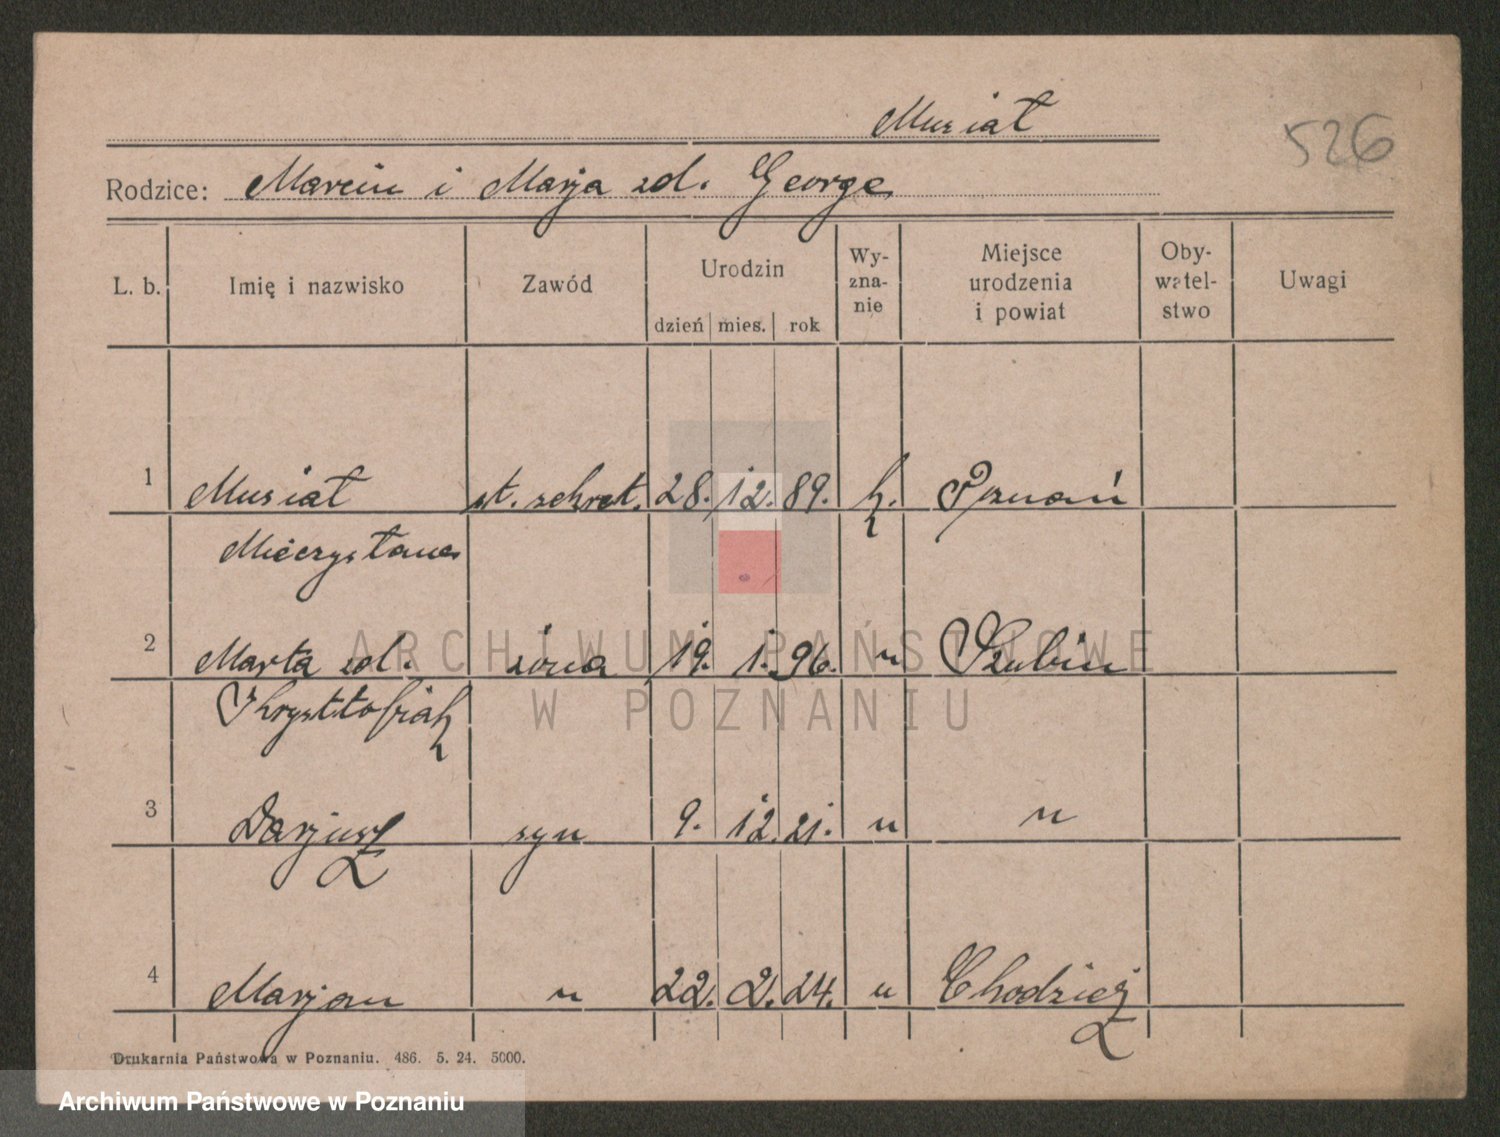 Musiał
526
Rodzice: Marcin i Marja zd. George
L. b. Imię i nazwisko Zawód Urodzin dzień mies. rok Wy-zna-nie Miejsce urodzenia i powiat Oby-watel-stwo Uwagi
1 Musiał st. sekret. 28. 12. 89. k. Poznań
Mieczysław
2 Marta zd. żona 19. 1. 96. " Szubin
Krysztofiak
3 Darjusz syn 9. 12. 21. " "
4 Marjan " 22. 2. 24. " Chodzież
Drukarnia Państwowa w Poznaniu. 486. 5. 24. 5000.
ARCHIWUM PAŃSTWOWE
W POZNANIU
Archiwum Państwowe w Poznaniu